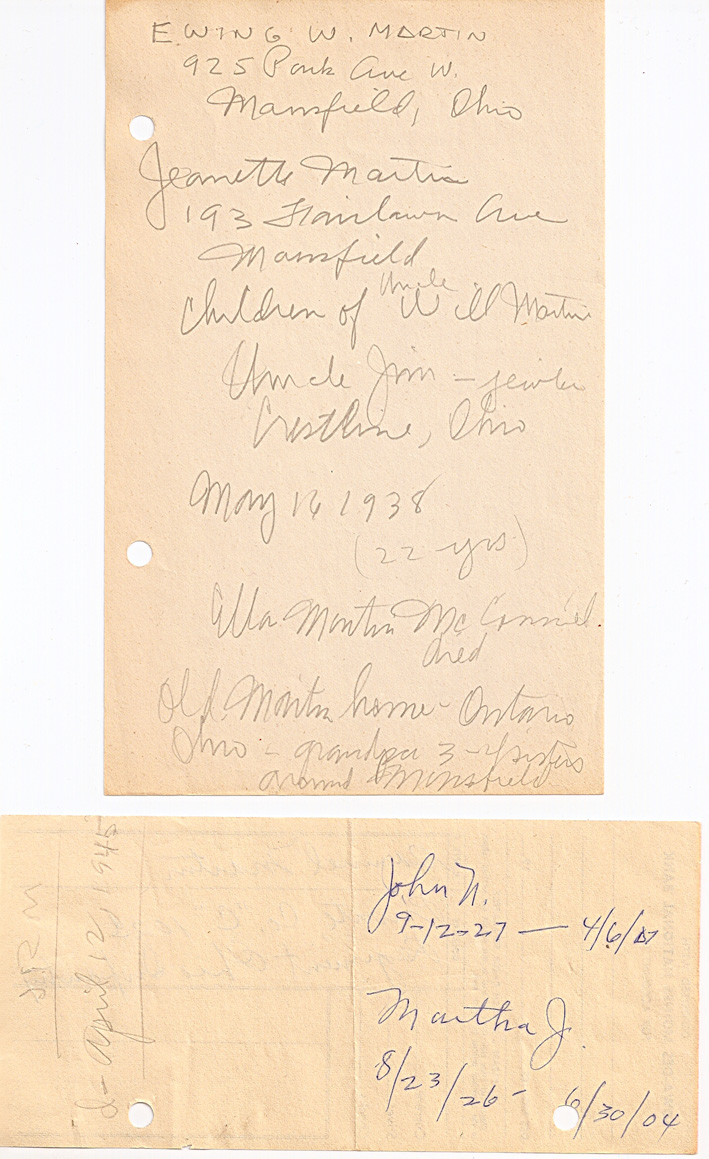 EWING W. MARTIN
925 Park Ave W.
Mansfield, Ohio
Jeanette Martin
193 Fairlawn Ave
Mansfield
Children of Uncle Will Martin
Uncle Jim - jewler
Crestline, Ohio
May 16 1938
(22 yrs)
Ella Martin McConnel
died
Old Martin home - Ontario
Ohio - grandpa 3-4 sisters
around Mansfield
d - April 12, 1945
John N.
9-12-27 — 4/6/07
Martha J.
8/23/26 - 6/30/04